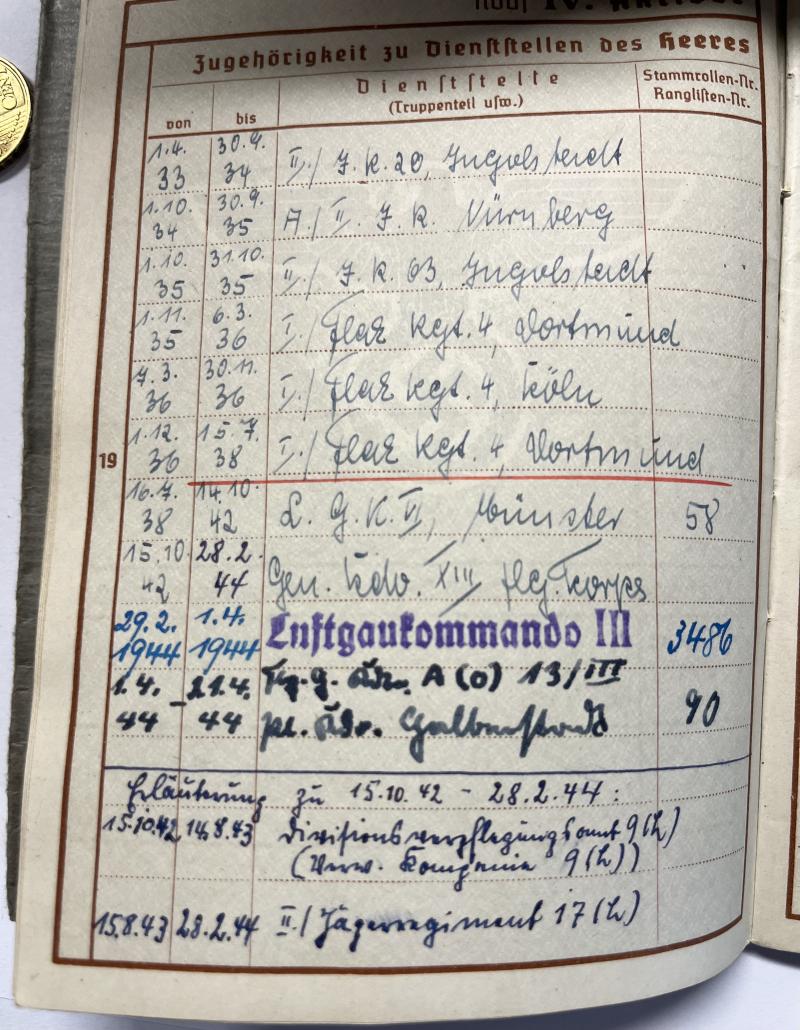 Noch IV.
Zugehörigkeit zu Dienststellen des Heeres
von bis Dienststelle (Truppenteil usw.) Stammrollen-Nr. Ranglisten-Nr.
1.4. 33 30.9. 34 II./ J.R. 20, Ingolstadt
1.10. 34 30.9. 35 A/ II. J.R. Nürnberg
1.10. 35 31.10. 35 II./ J.R. 63, Ingolstadt
1.11. 35 6.3. 36 I./ Flak Rgt. 4, Dortmund
7.3. 36 30.11. 36 I./ Flak Rgt. 4, Köln
1.12. 36 15.7. 38 I./ Flak Rgt. 4, Dortmund
16.7. 38 14.10. 42 L.G.K. VI, Münster 58
15.10. 42 28.2. 44 Gen. Kdo. XIII Flg. Korps
29.2. 1944 1.4. 1944 Luftgaukommando III 3486
1.4. 44 - 21.4. 44 A (o) 13/III
90
19
Erläuterung zu 15.10.42 - 28.2.44:
15.10.42 14.8.43 Divisionsverpflegungsamt 9(L)
(Verw. Kompanie 9(L))
15.8.43 28.2.44 II./Jägerregiment 17(L)